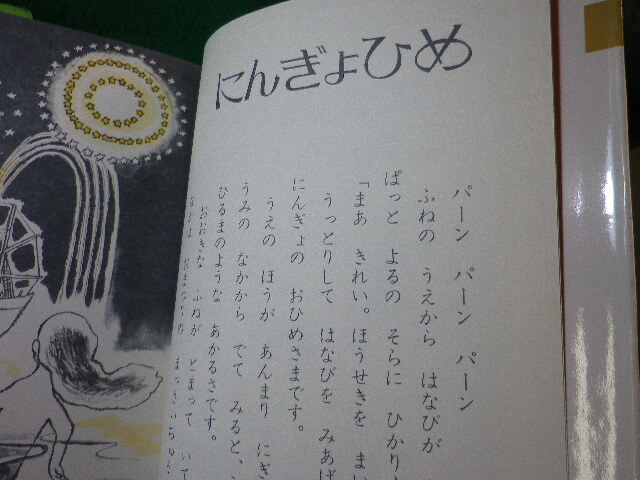 にんぎょひめ
パーン パーン パーン
ふねの うえから はなびが
ぱっと よるの そらに ひかり
「まあ きれい。ほうせきを まい
うっとりして はなびを みあげ
にんぎょの おひめさまです。
うえの ほうが あんまり にぎ
うみの なかから でて みると、
ひるまのような あかるさです。
おおきな ふねが とまって いて